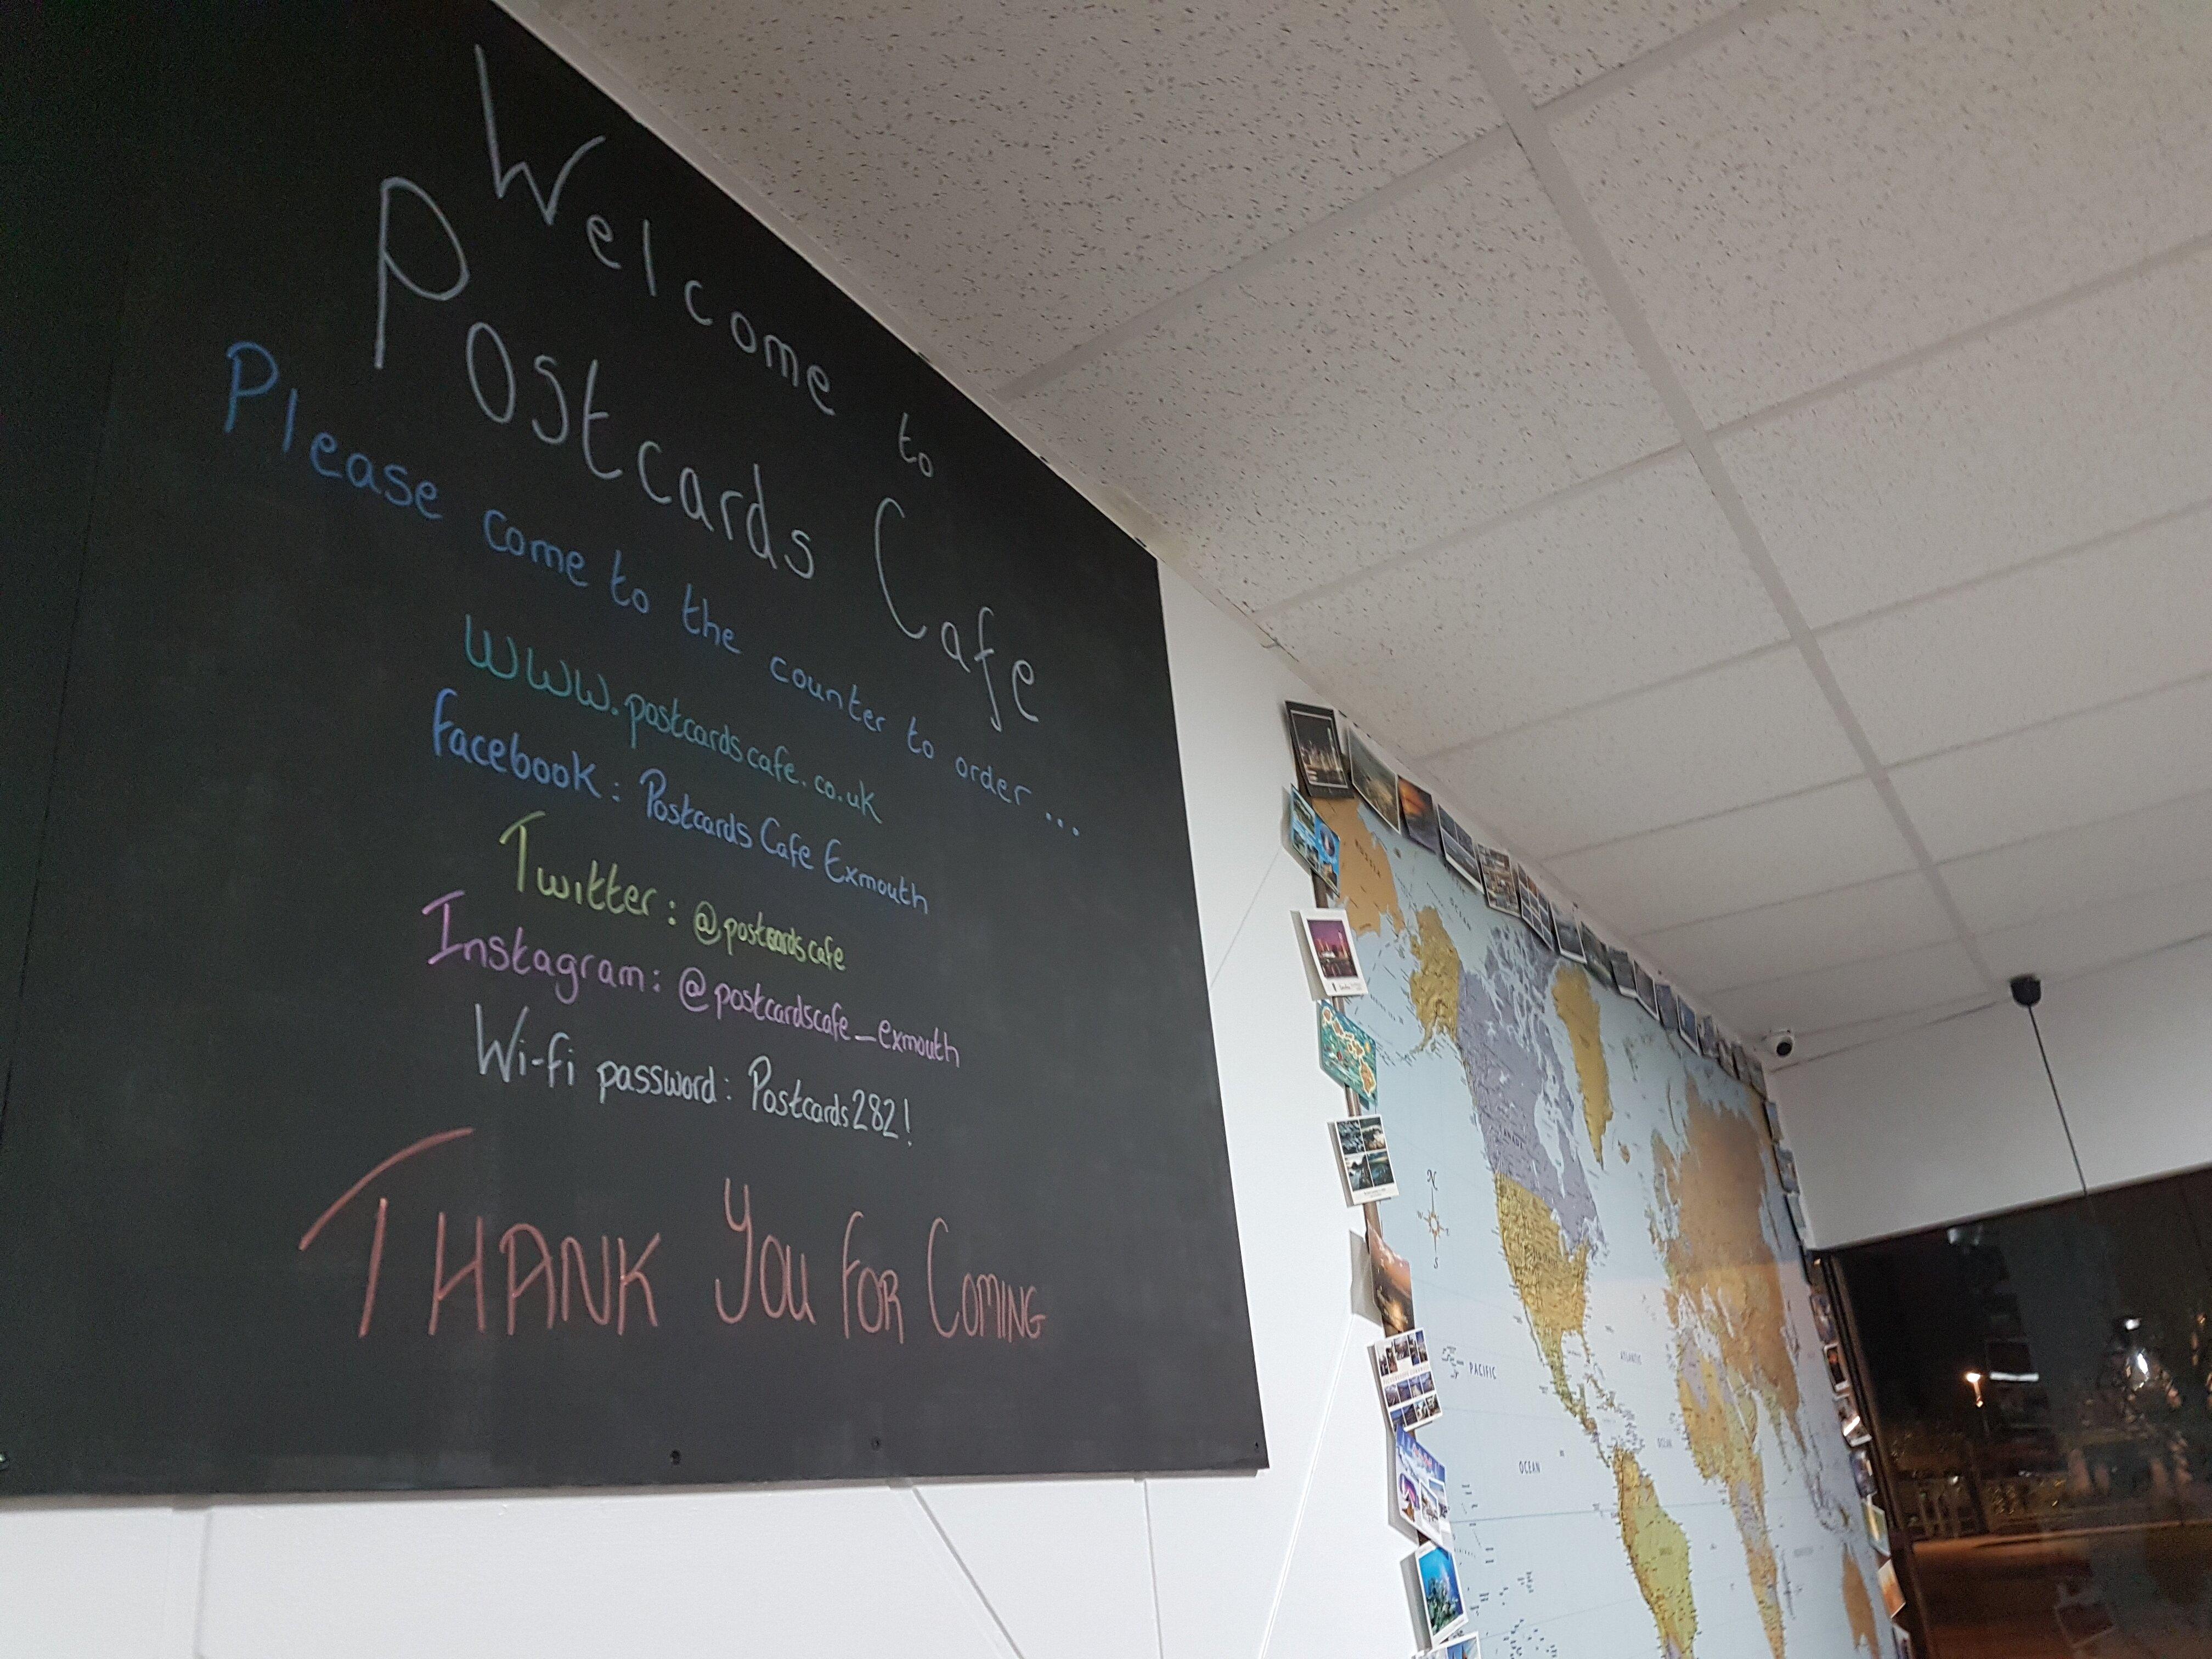 Welcome to
Postcards Cafe
Please come to the counter to order...
www.postcardscafe.co.uk
facebook: Postcards Cafe Exmouth
Twitter: @postcardscafe
Instagram: @postcardscafe_exmouth
Wi-fi password: Postcards282!
THANK YOU FOR COMING
RUSSIA
OCEAN
CANADA
N
S
PACIFIC
OCEAN
ATLANTIC
OCEAN